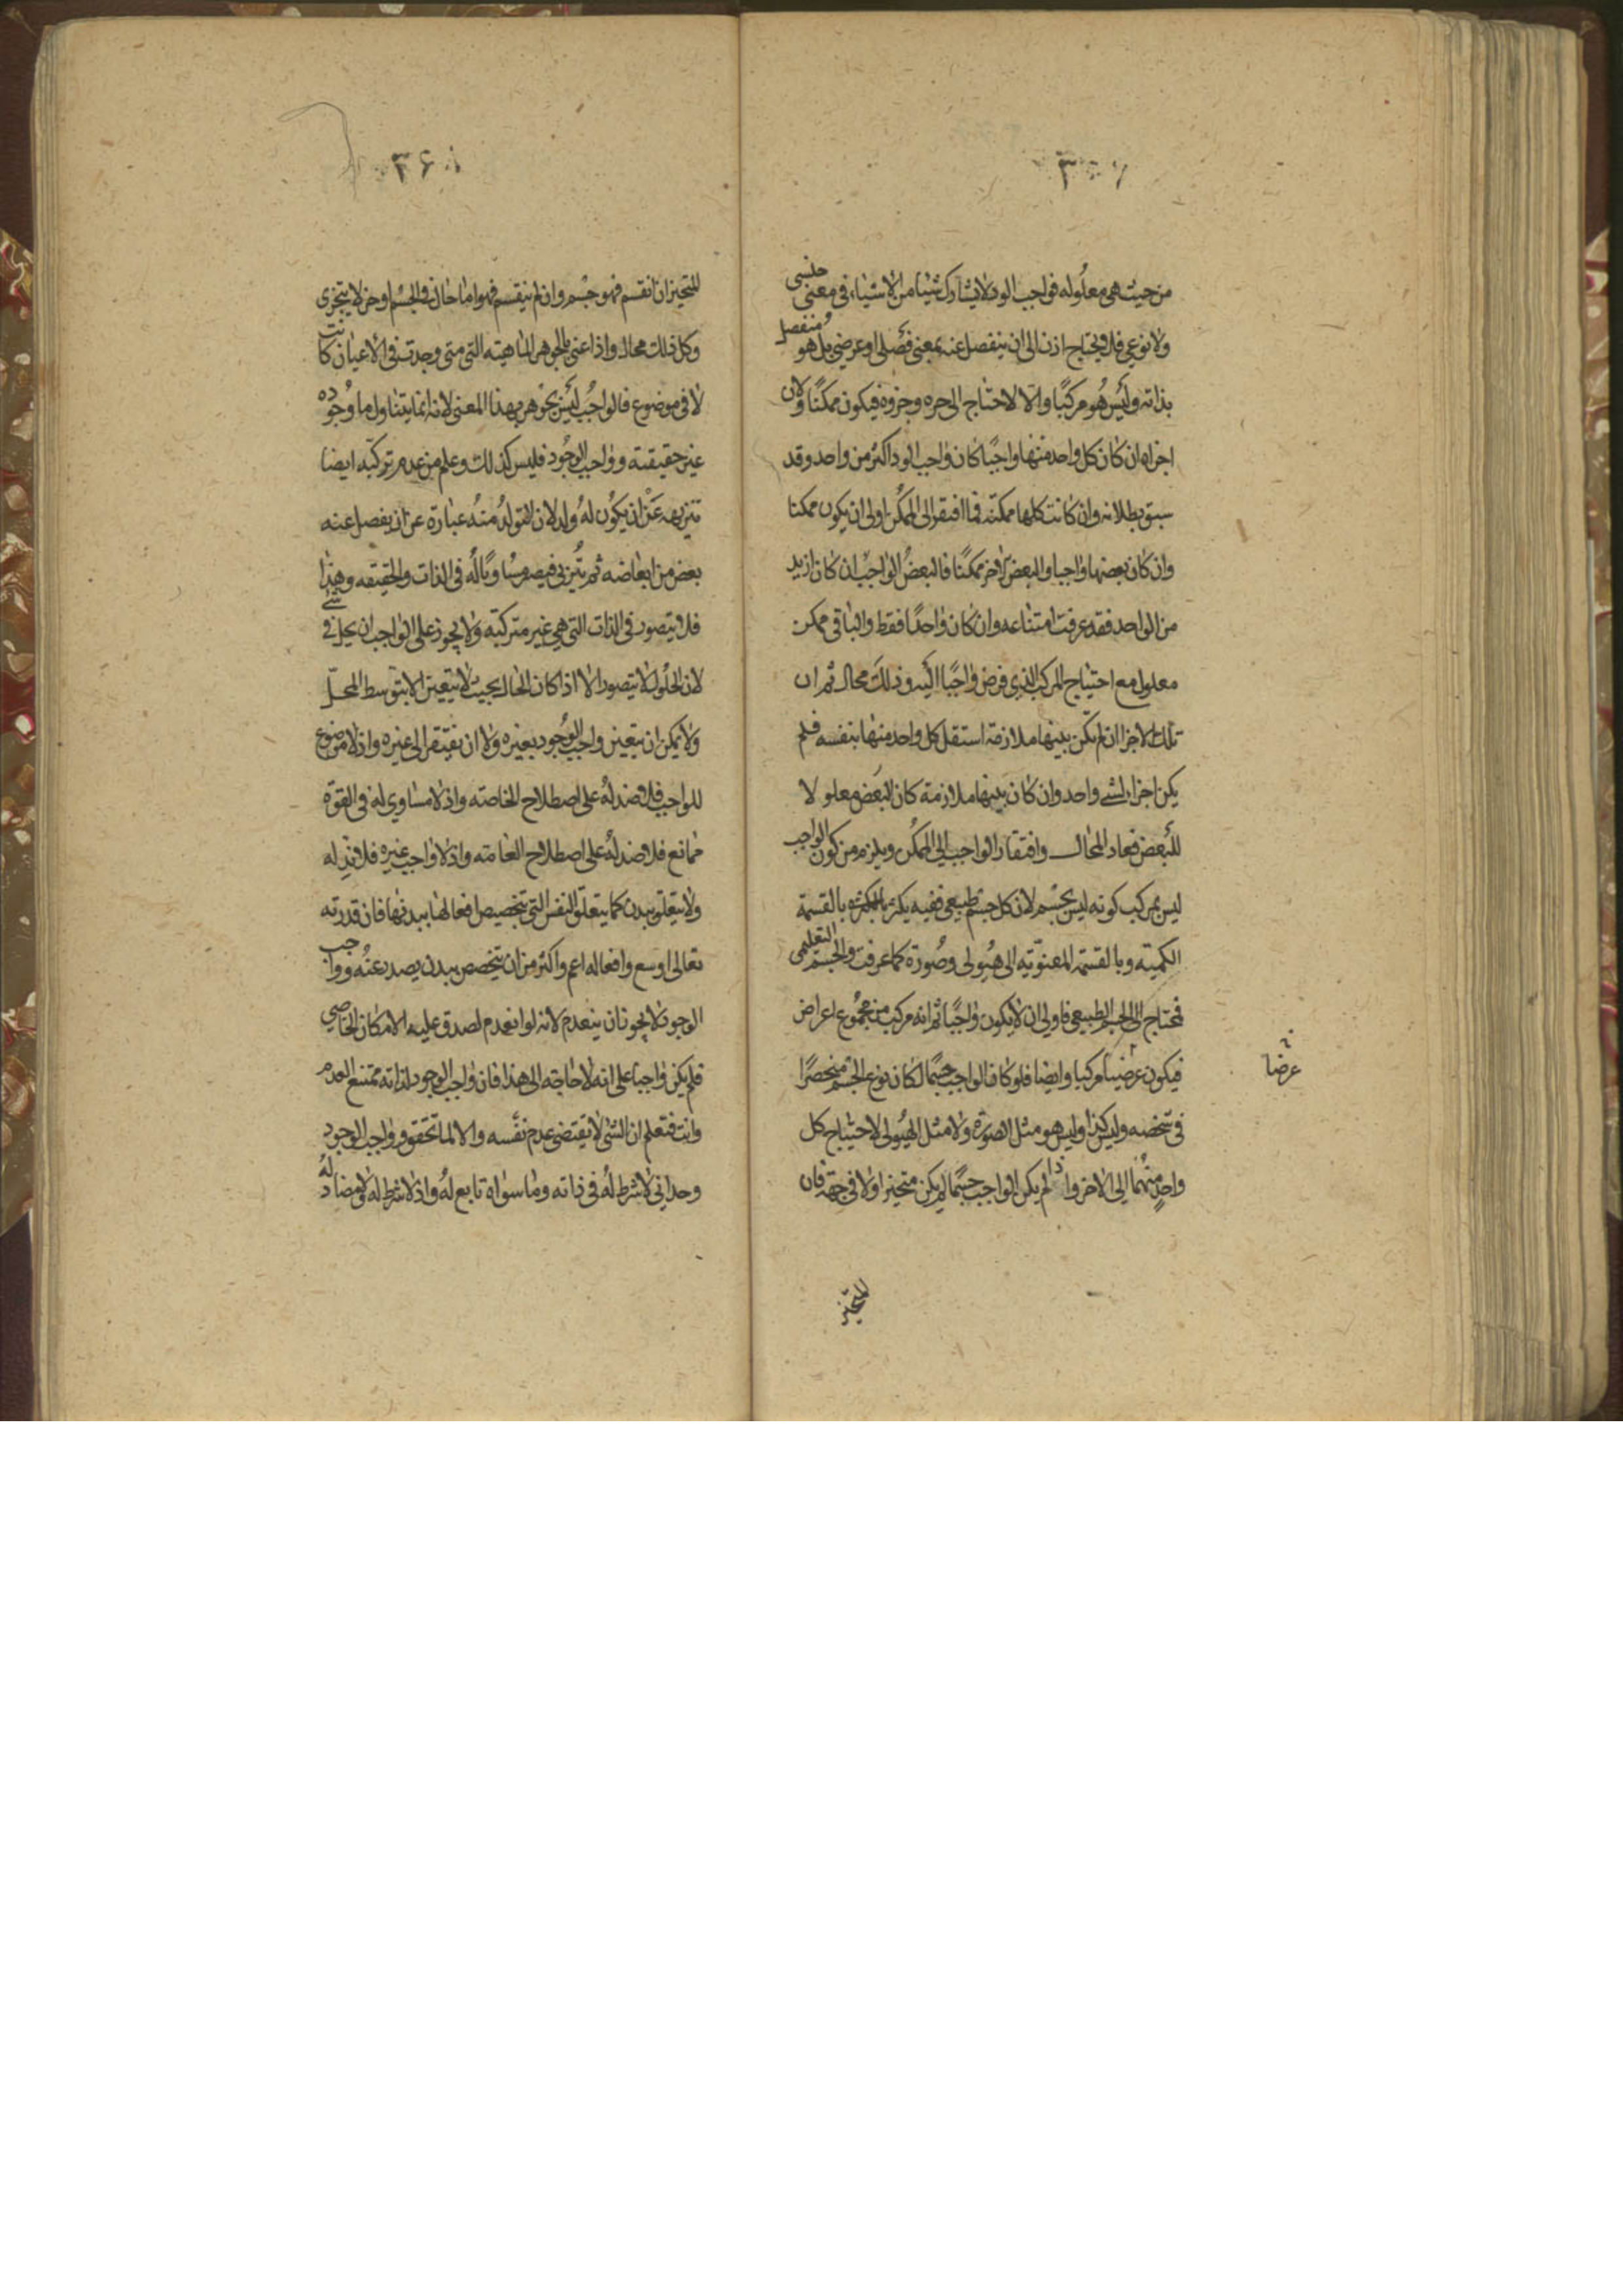 من حيث هي معلوله فواجب الوجود لا يشارك شيئا من الاشياء في معنى جنسي
ولا نوعي فلا يحتاج اذن الى ان ينفصل عنه بمعنى فصلي او عرضي بل هو منفصل
بذاته وليس هو مركبًا والّا لاحتاج الى جزه وجزوه غيره فيكون ممكنًا ولان
اجزاه ان كان كل واحد منها واجبًا كان واجب الوجود اكثر من واحد وقد
سبق بطلانه وان كانت كلها ممكنه فما افتقر الى الممكن اولى ان يكون ممكنا
وان كان بعضها واجبا والبعض الاخر ممكنًا فالبعض الواجب ان كان ازيد
من الواحد فقد عرفت امتناعه وان كان واحدًا فقط والباقي ممكن
معلول مع احتياج المركب الذي فرض واجبًا اليه وذلك محال ثم ان
تلك الاجزا ان لم تكن بينها ملازمة استقل كل واحد منها بنفسه فلم
يكن اجزاء لشي واحد وان كان بينها ملازمة كان البعض معلولا
للبعض فعاد المحال وافتقار الواجب الى الممكن ويلزم من كون الواجب
ليس بمركب كونه ليس بجسم لان كل جسم طبيعي ففيه بالقسمة
الكميته وبالقسمه المعنويه الى هيولى وصورة كما عرفت والجسم التعليمي
فمحتاج الى الجسم الطبيعي فاولى ان لا يكون واجبًا ثم انه مركب من مجموع اعراض
فيكون عرضيا مركبا وايضا فلو كان الواجب جسمًا لكان نوع الجسم منحصرًا
عرضا
في شخصه وليس كذا وليس هو مثل الصورة ولا مثل الهيولى لاحتياج كل
واحد منهما الى الاخر واذا لم يكن الواجب جسمًا لم يكن متحيزا ولا في جهة فان
المتحيز
المتحيز ان انقسم فهو جسم وان لم ينقسم فهو اما حال في الجسم او جز لا يتجزى
وكل ذلك محال واذا عني بالجوهر الماهيته التي متى وجدت في الاعيان كانت
لا في موضوع فالواجب ليس بجوهر بهذا المعنى لانه انما يتناول ما وجوده
غير حقيقته وواجب الوجود فليس كذلك وعلم من عدم تركبه ايضا
تنزيهه عَنْ ان يكون لهُ ولد لان المتولد منه عبارة عن ان يفصل عنه
بعض من ابعاضه ثم يتربى فيصير مساويًا له في الذات والحقيقه وهذا
فلا يتصور في الذات التي هي غير متركبه ولا يجوز على الواجب ان يحل في شي
لان الحلول لا يتصور الا اذا كان الحال بحيث لا يتعين الا بتوسط المحلّ
ولا يمكن ان يتعين واجب الوجود بغيره ولا ان يفتقر الى غيره واذ لا موضوع
للواجب فلا ضد لهُ على اصطلاح الخاصته واذ لا مساوي له في القوّه
ممانع فلا ضد لهُ على اصطلاح العامته واذ لا واجب غيره فلا ند له
ولا يتعلق ببدن كما يتعلّق النفس التي تتخصيص افعالها ببدنها فان قدرته
تعالى اوسع وافعاله اعم واكثر من ان يتخصص ببدن يصدر عنهُ وواجب
الوجود لا يجوز ان ينعدم لانه لو انعدم لصدق عليه الامكان الخاصي
فلم يكن واجبا على انه لا حاجته الى هذا فان واجب الوجود لذاته ممتنع العدم
وانت فتعلم ان الشئ لا يقتضي عدم نفسه والا لما تحقق وواجب الوجود
وحداني لا شرط لهُ في ذاته وما سواه تابع لهُ واذ لا شرط له ولا مضاد لهُ